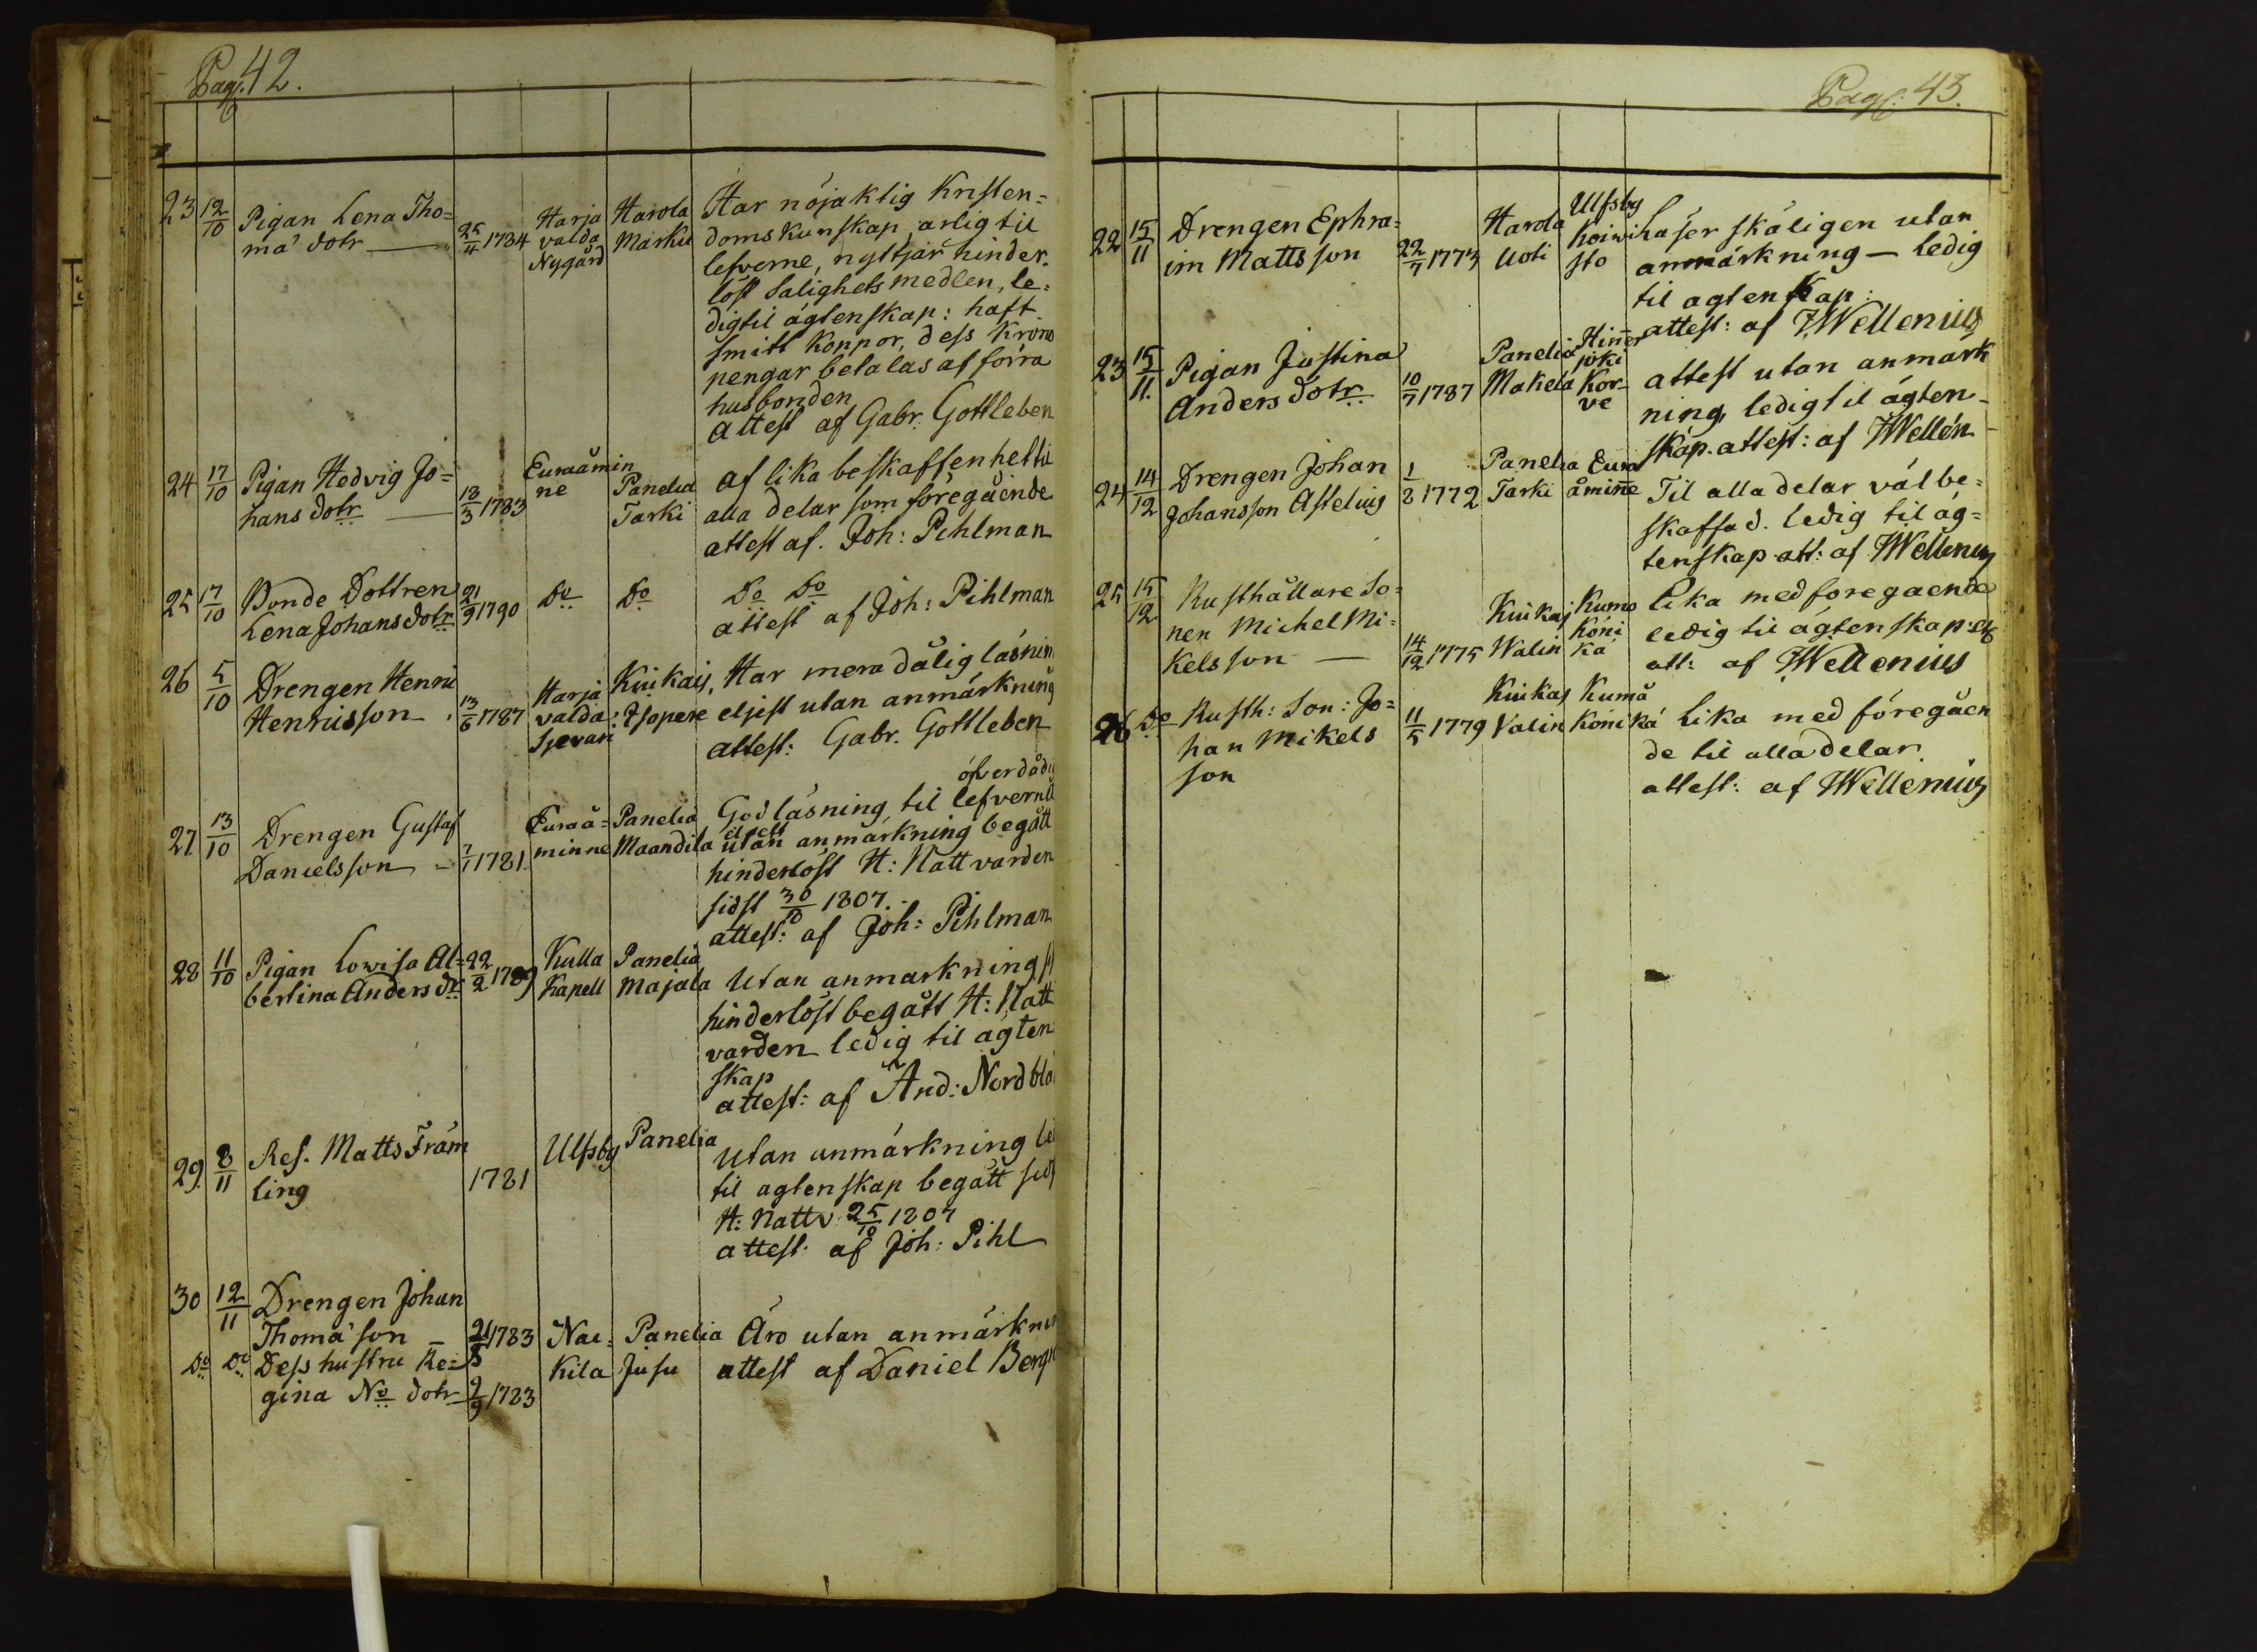 Pag: 42.
23 12/10 Pigan Lena Tho=
ma dotr 25/4 1784 Harja
valda
Nygård Harola
Markü Har nöjaktig Kristen=
doms Kunskap, ärlig til
lefverne, nyttjar hinder=
löst Salighets medlen, le=
dig til ägtenskap: haft
smitt Koppor, dess Krono
pengar betalas af förra
husbonden
Attest af Gabr. Gottleben
24 17/10 Pigan Hedvig Jo=
hans dotr 13/3 1783 Euraåmin
ne Panelia
Tarki af lika beskaffenhet til
alla delar som föregående
attest af. Joh: Pihlman
25 17/10 Bonde Dottren
Lena Johans dotr 21/9 1790 Do Do Do Do
attest af Joh: Pihlman
26 5/10 Drengen Henric
Henricsson 13/6 1787 Harja
valda
Sjevari Kiukais,
Isopere Har mera dålig läsnin
eljest utan anmärkning
attest: Gabr. Gottleben
27. 13/10 Drengen Gustaf
Danielsson 7/1 1781. Euraå=
minne Panelia
Maandila öfverdådi
God läsning, til lefvernet
eljest
utan anmärkning begått
hinderlöst H: Nattvarden
sidst 30/10 1807.
attest: af Joh: Pihlman
28 11/10 Pigan Lowisa Al=
bertina Anders dr 22/2 1789 Kulla
Kapell Panelia
Majala Utan anmärkning
hinderlöst begått H: Natt
varden ledig til ägten
skap
attest: af And: Nordblo
29. 8/11 Ref. Matts Främ
ling 1781 Ulfsby Panelia Utan anmärkning le
til ägtenskap begått sid
H: Nattv 25/10 1807
attest. af Joh: Pihl
30 12/11 Drengen Johan
Thoma son 21/8 1783 Nac=
kila Panelia
Jusu Äro utan anmärknin
attest af Daniel Berg
Do Do Dess hustru Re=
gina No dotr 9/9 1783
Pag: 43.
22 15/11 Drengen Ephra=
im Matts son 22/7 1773 Harola
Uoti Ulfsby
Koiwi
sto Läser skäligen utan
anmärkning — ledig
til agtenskap:
attest: af JWellenius
23 15/11. Pigan Justina
Anders dotr 10/7 1787 Panelia
Makela Hiner
joki
Kor=
ve attest utan anmärk
ning, ledig til ägten=
skap. attest: af JWellén
24 14/12 Drengen Johan
Johansson Astelius 1/8 1772 Panelia
Tarki Eura
åminne Til alla delar väl be=
skaffad. ledig til äg=
tenskap att: af JWellenius
25 15/12 Rusthållare So=
nen Michel Mi=
kelsson 14/12 1775 Kiukais
Walin Kumo
Köni
kä Lika med foregaende
ledig til ägtenskap:etc
att: af JWellenius
26 Do Rusth: Son: Jo=
han Mikels
son 11/5 1779 Kiukas
Valin Kumå
Könikä Lika med föregåen
de til alla delar.
attest: af JWellenius